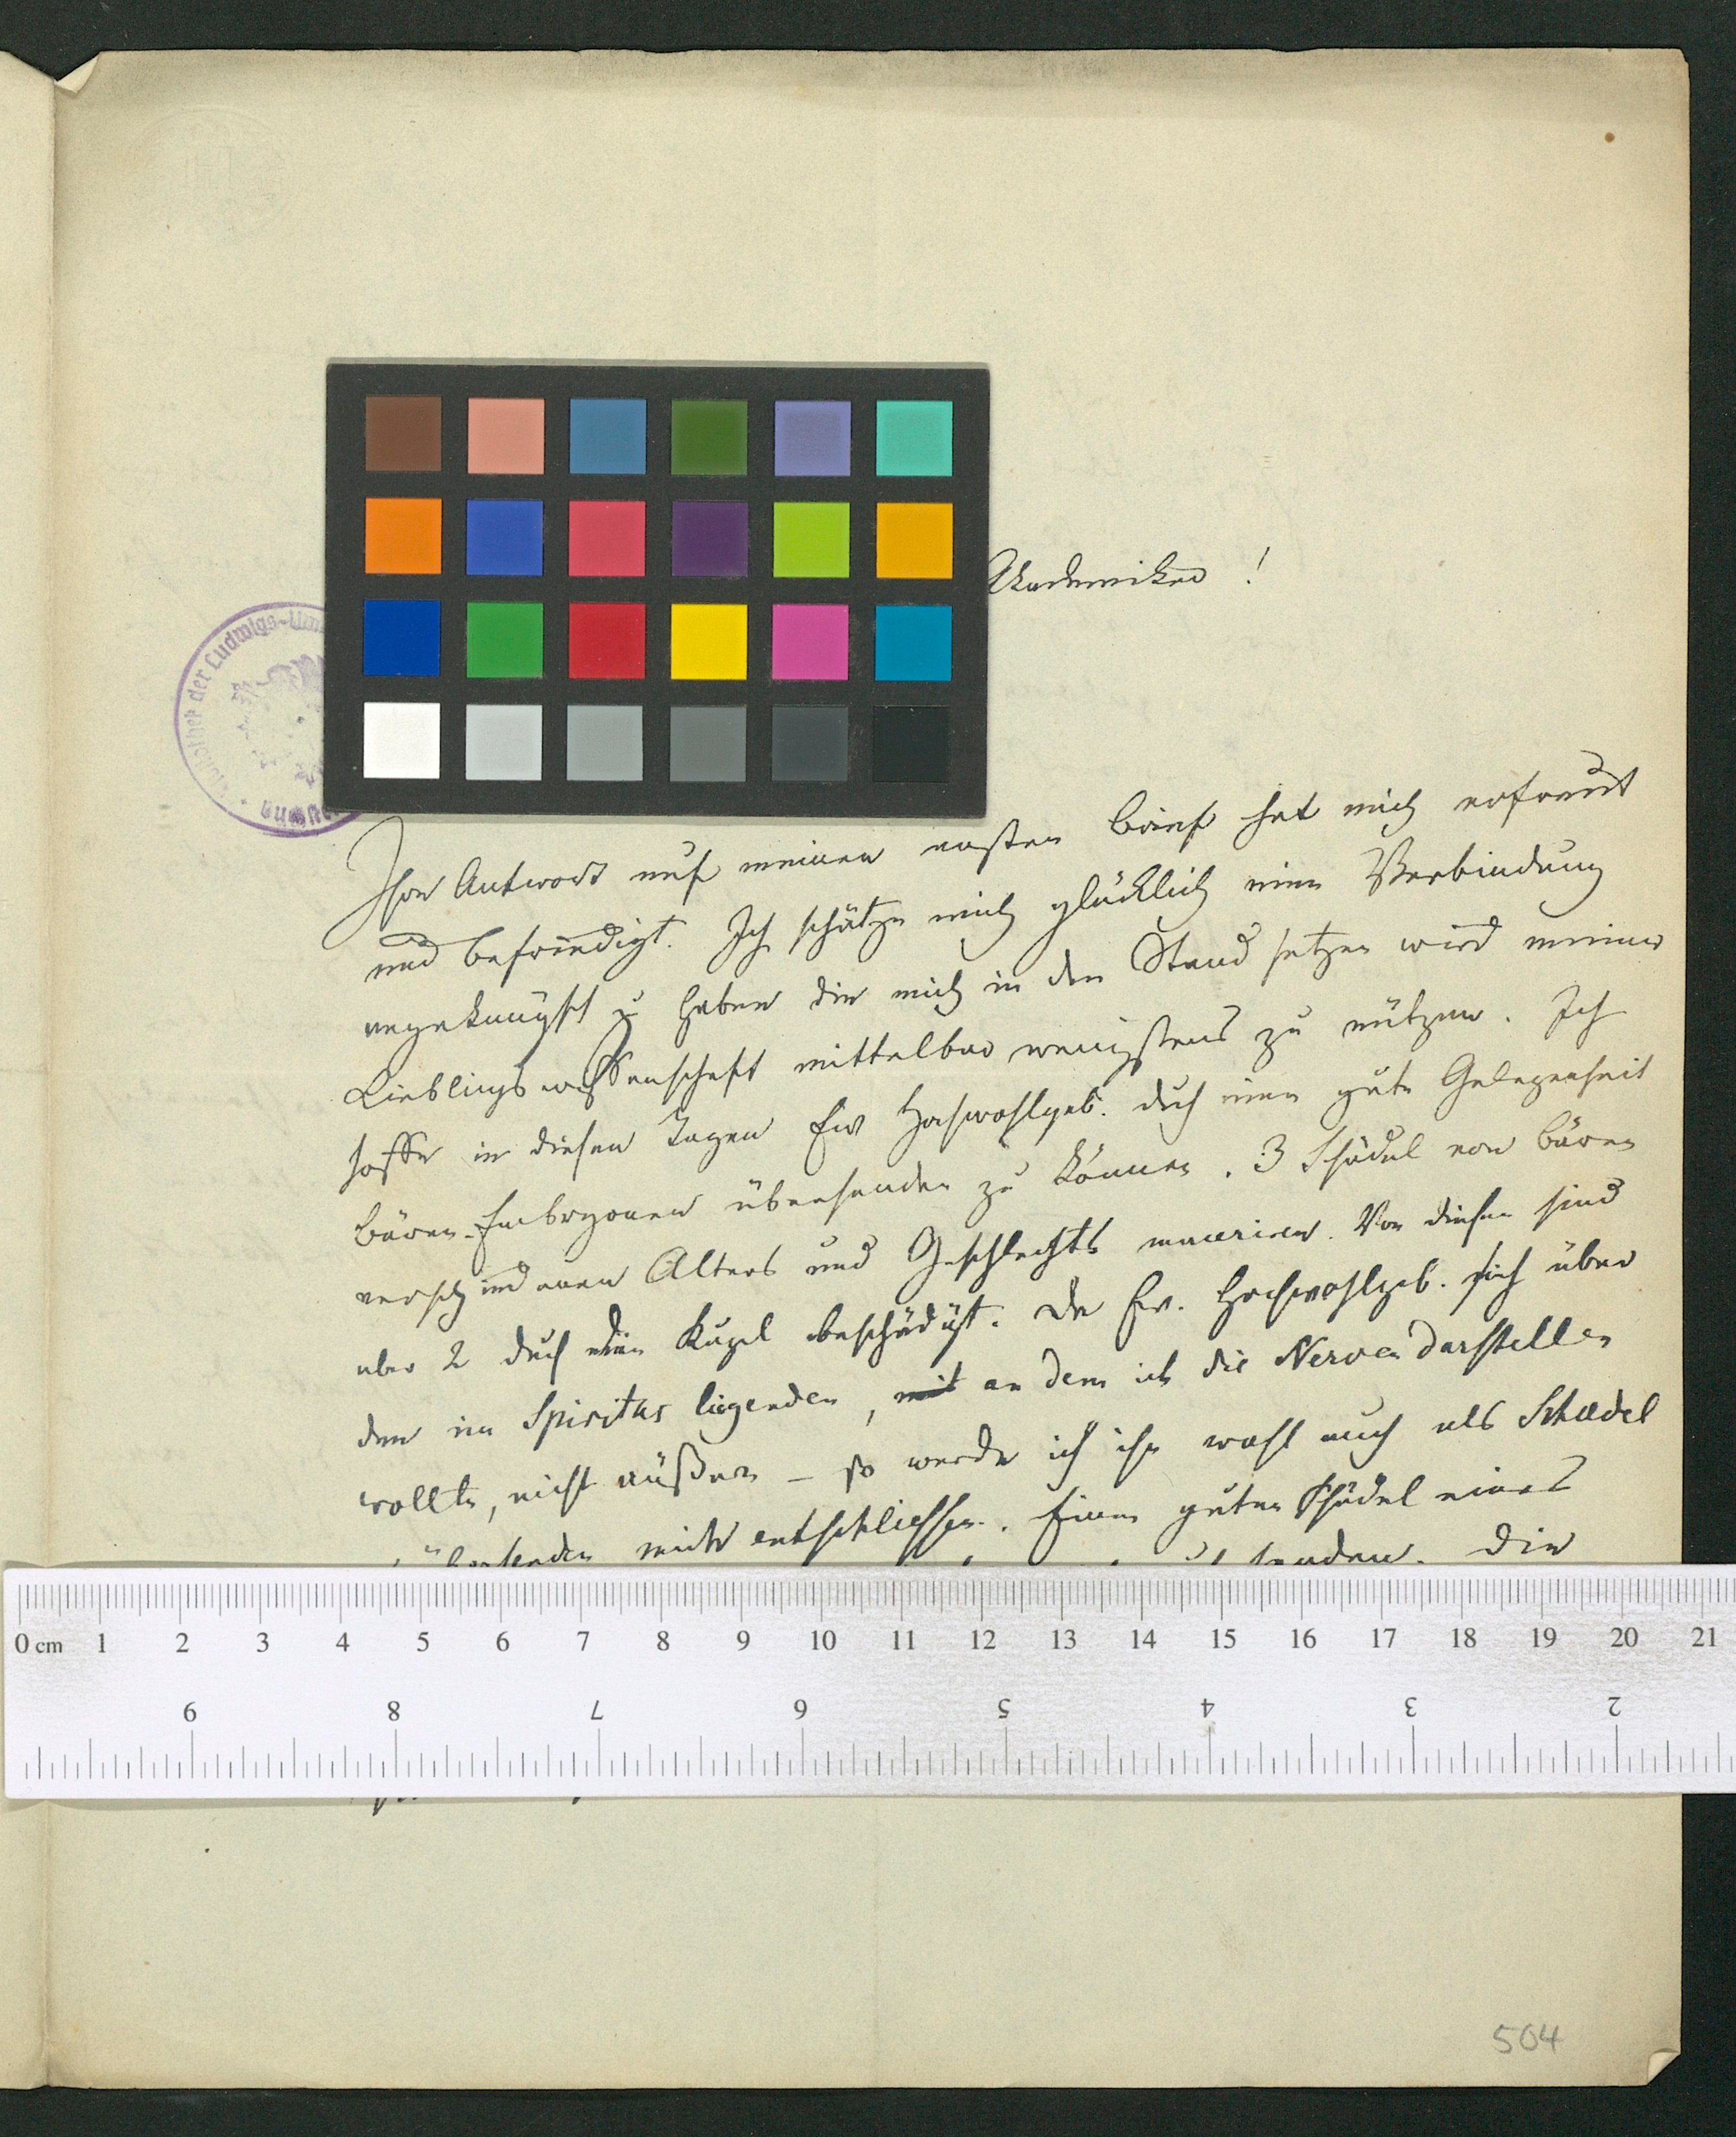 Akademiker !
Bibliothek der Ludwigs-Uni
Ihre Antwort auf meinen ersten Brief hat mich erfreut
und befriedigt. Ich schätze mich glücklich eine Verbindung
angeknüpft zu haben die mich in den Stand setzen wird meiner
Lieblingswissenschaft mittelbar wenigstens zu nützen. Ich
hoffe in diesen Tagen Ew Hochwohlgeb. durch eine gute Gelegenheit
Bären-Embryonen übersenden zu können. 3 Schädel von Bären
verschiedenen Alters und Geschlechts maceriren. Von diesen sind
aber 2 durch die Kugel beschädigt. Da Ew. Hochwohlgeb. sich über
den im Spiritus liegenden, mit an dem ich die Nerven darstellen
wollte, nicht äußern – so werde ich ihn wohl auch als Schaedel
übersenden mich entschliessen. Einen guten Schädel eines
senden. Die
0 cm 1 2 3 4 5 6 7 8 9 10 11 12 13 14 15 16 17 18 19 20 21
9 8 7 6 5 4 3 2
504